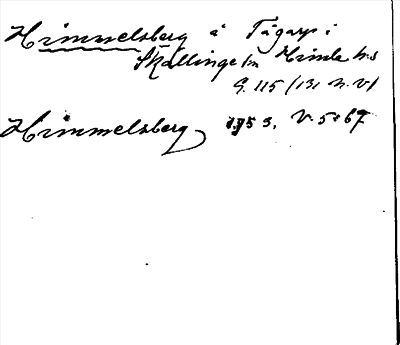 Himmelsberg å Tågarp i
Skällinge sn Himle hd
G. 115 (131 n. v)
Himmelsberg 1953. V. 5:67